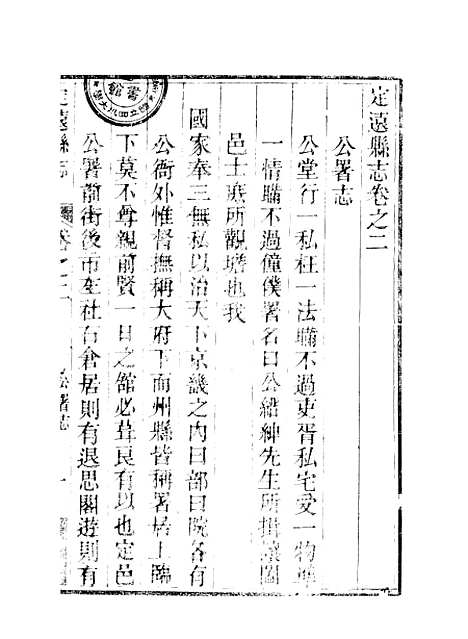 定遠縣志卷之二
公署志
公堂行一私枉一法瞞不過吏胥私宅愛一物
一情瞞不過僮僕署名曰公縉紳先生所
邑士庶所觀瞻也我
國家奉三無私以治天下京畿之內曰部曰院各有
公衙外惟督撫稱大府下而州縣皆稱署居上臨
下莫不毋親前賢一日之館必葺良有以也定邑
公署前街後市左社右倉居則有退思閣遊則有
定遠縣志
卷之二
公署志
一
書館